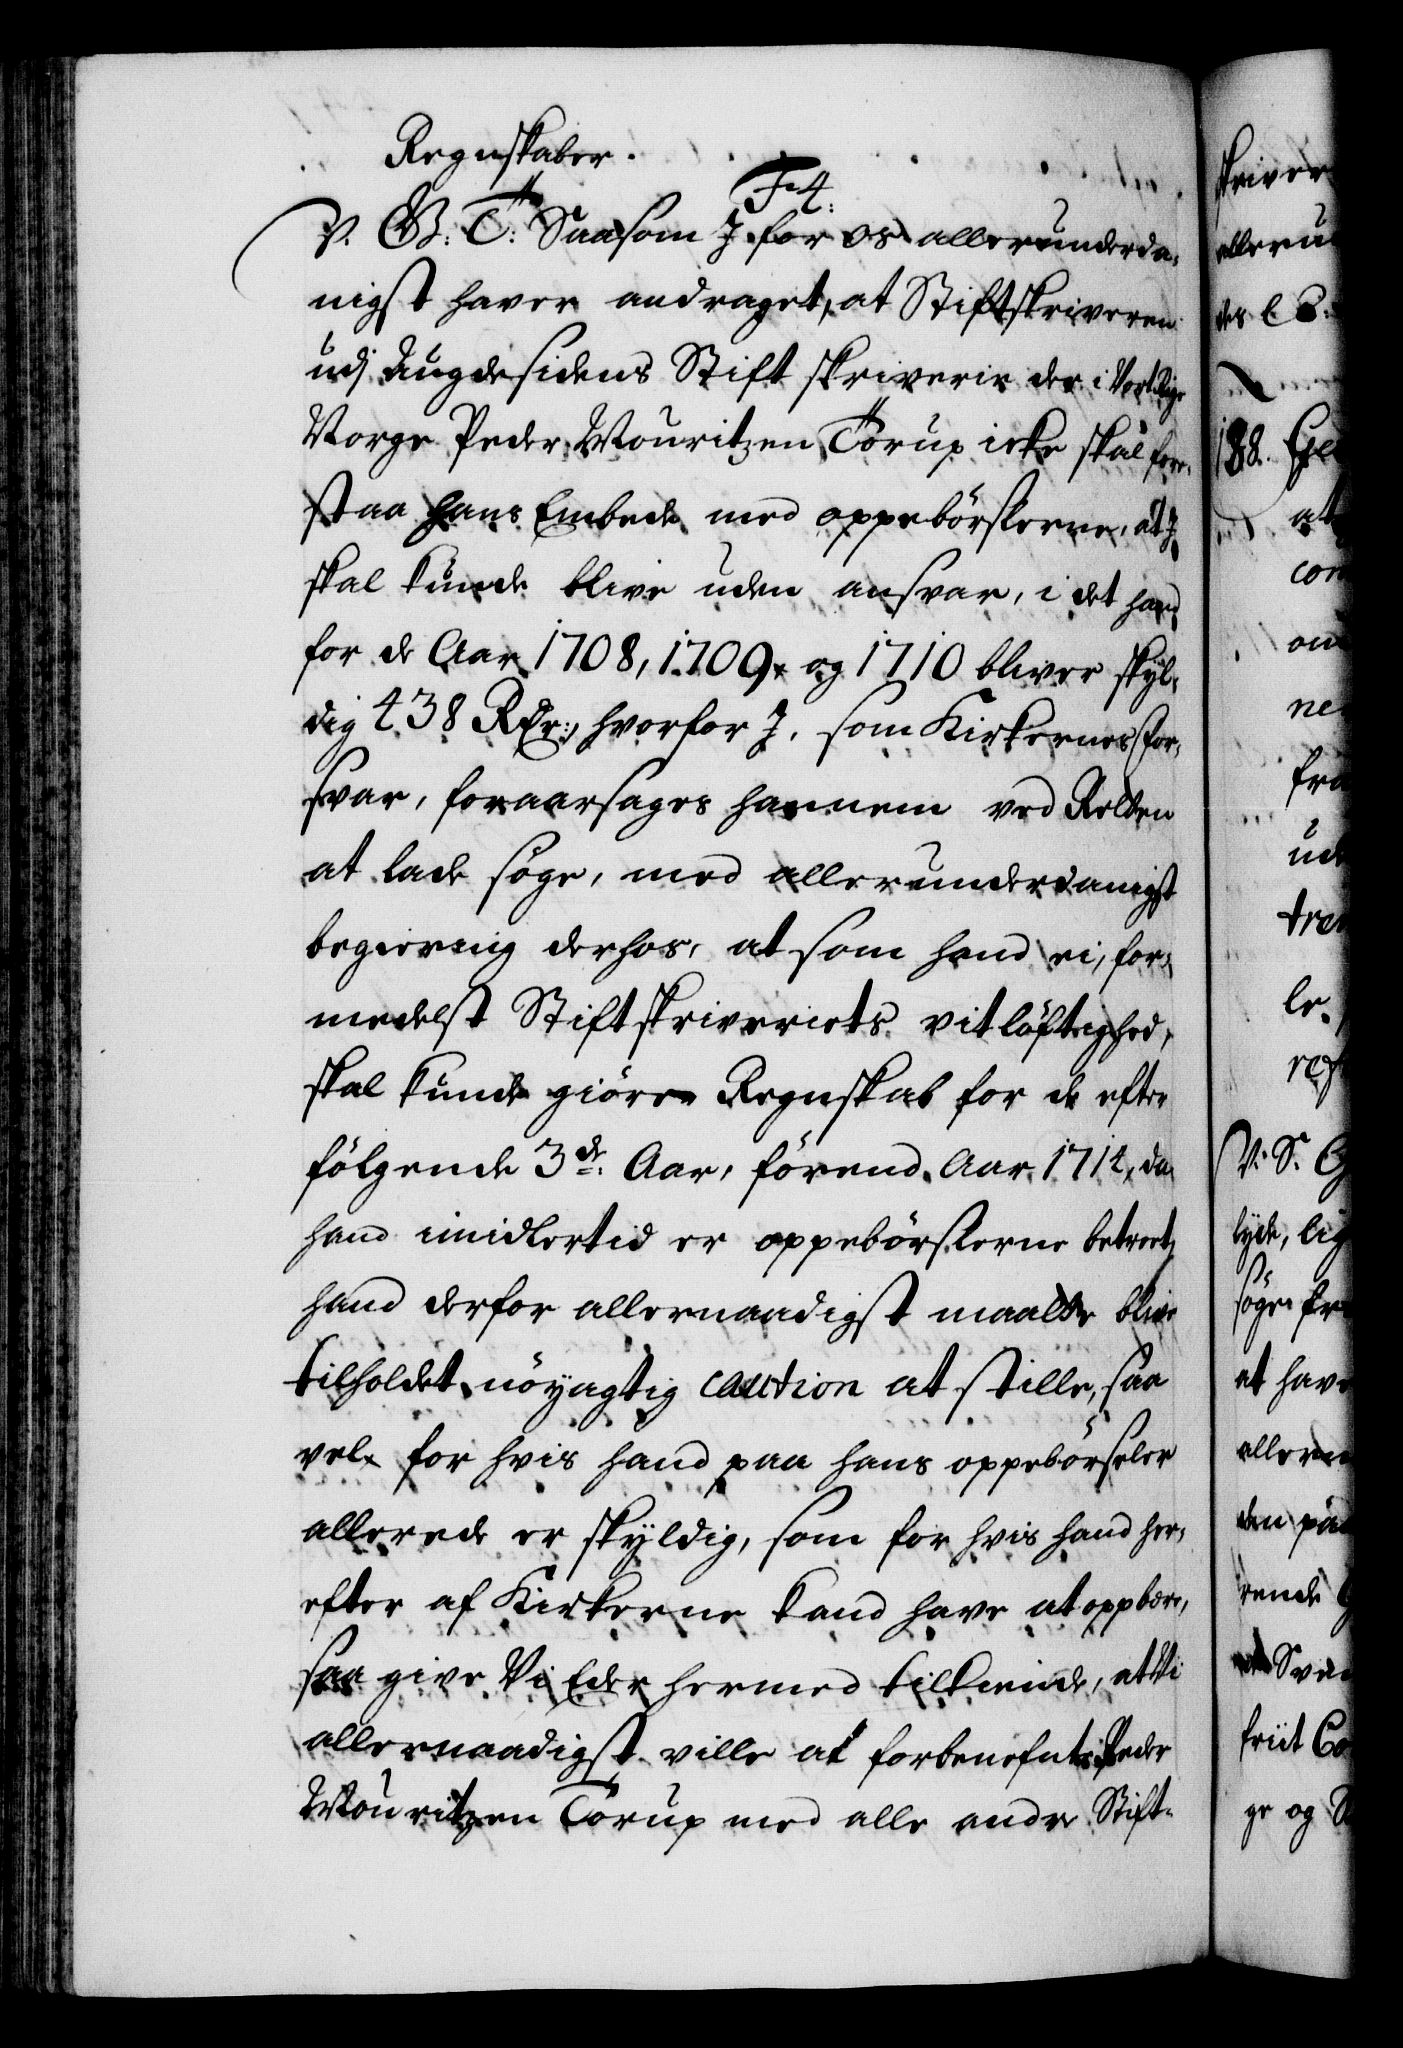 Regnskaber.
F4.
V. G: T: Saasom J for os allerunderda-
nigst haver andraget, at Stiftskriveren
udj Augdesidens Stift skriverie der i Vort Rige
Norge Peder Mouritzen Torup icke skal fore-
staa hans Embede med oppebörslerne, at J
skal kunde blive uden ansvar, i det hand
for de Aar 1708, 1709, og 1710 bliver skyl-
dig 438 Rdr:, hvorfor J, som Kirkernes for-
svar, foraarsages hannem ved Retten
at lade söge, med allerunderdanigst
begiering derhos, at som hand ei, for-
medelst Stiftskriveriets vitlöftighed,
skal kunde giöre Regnskab for de efter
fölgende 3de. Aar, förend Aar 1714, da
hand imidlertid er oppebörslerne betroet,
hand derfor allernaadigst maatte blive
tilholdet nöyagtig caution at stille, saa
vel for hvis hand paa hans oppebörseler
allerede er skyldig, som for hvis hand her-
efter af Kirkerne kand have at oppbære,
saa give Vi Eder hermed tilkiende, at Vi
allernaadigst ville at forbenefnte Peder
Mouritzen Torup med alle andre Stift-
skriver
alleru
des C C:
188.
at
con
om
ne
fra
ud
tra
le.
V. S. G
lyde, lig
söge fr
at have
allern
den pa
rende
Sven
friit Co
ge og S